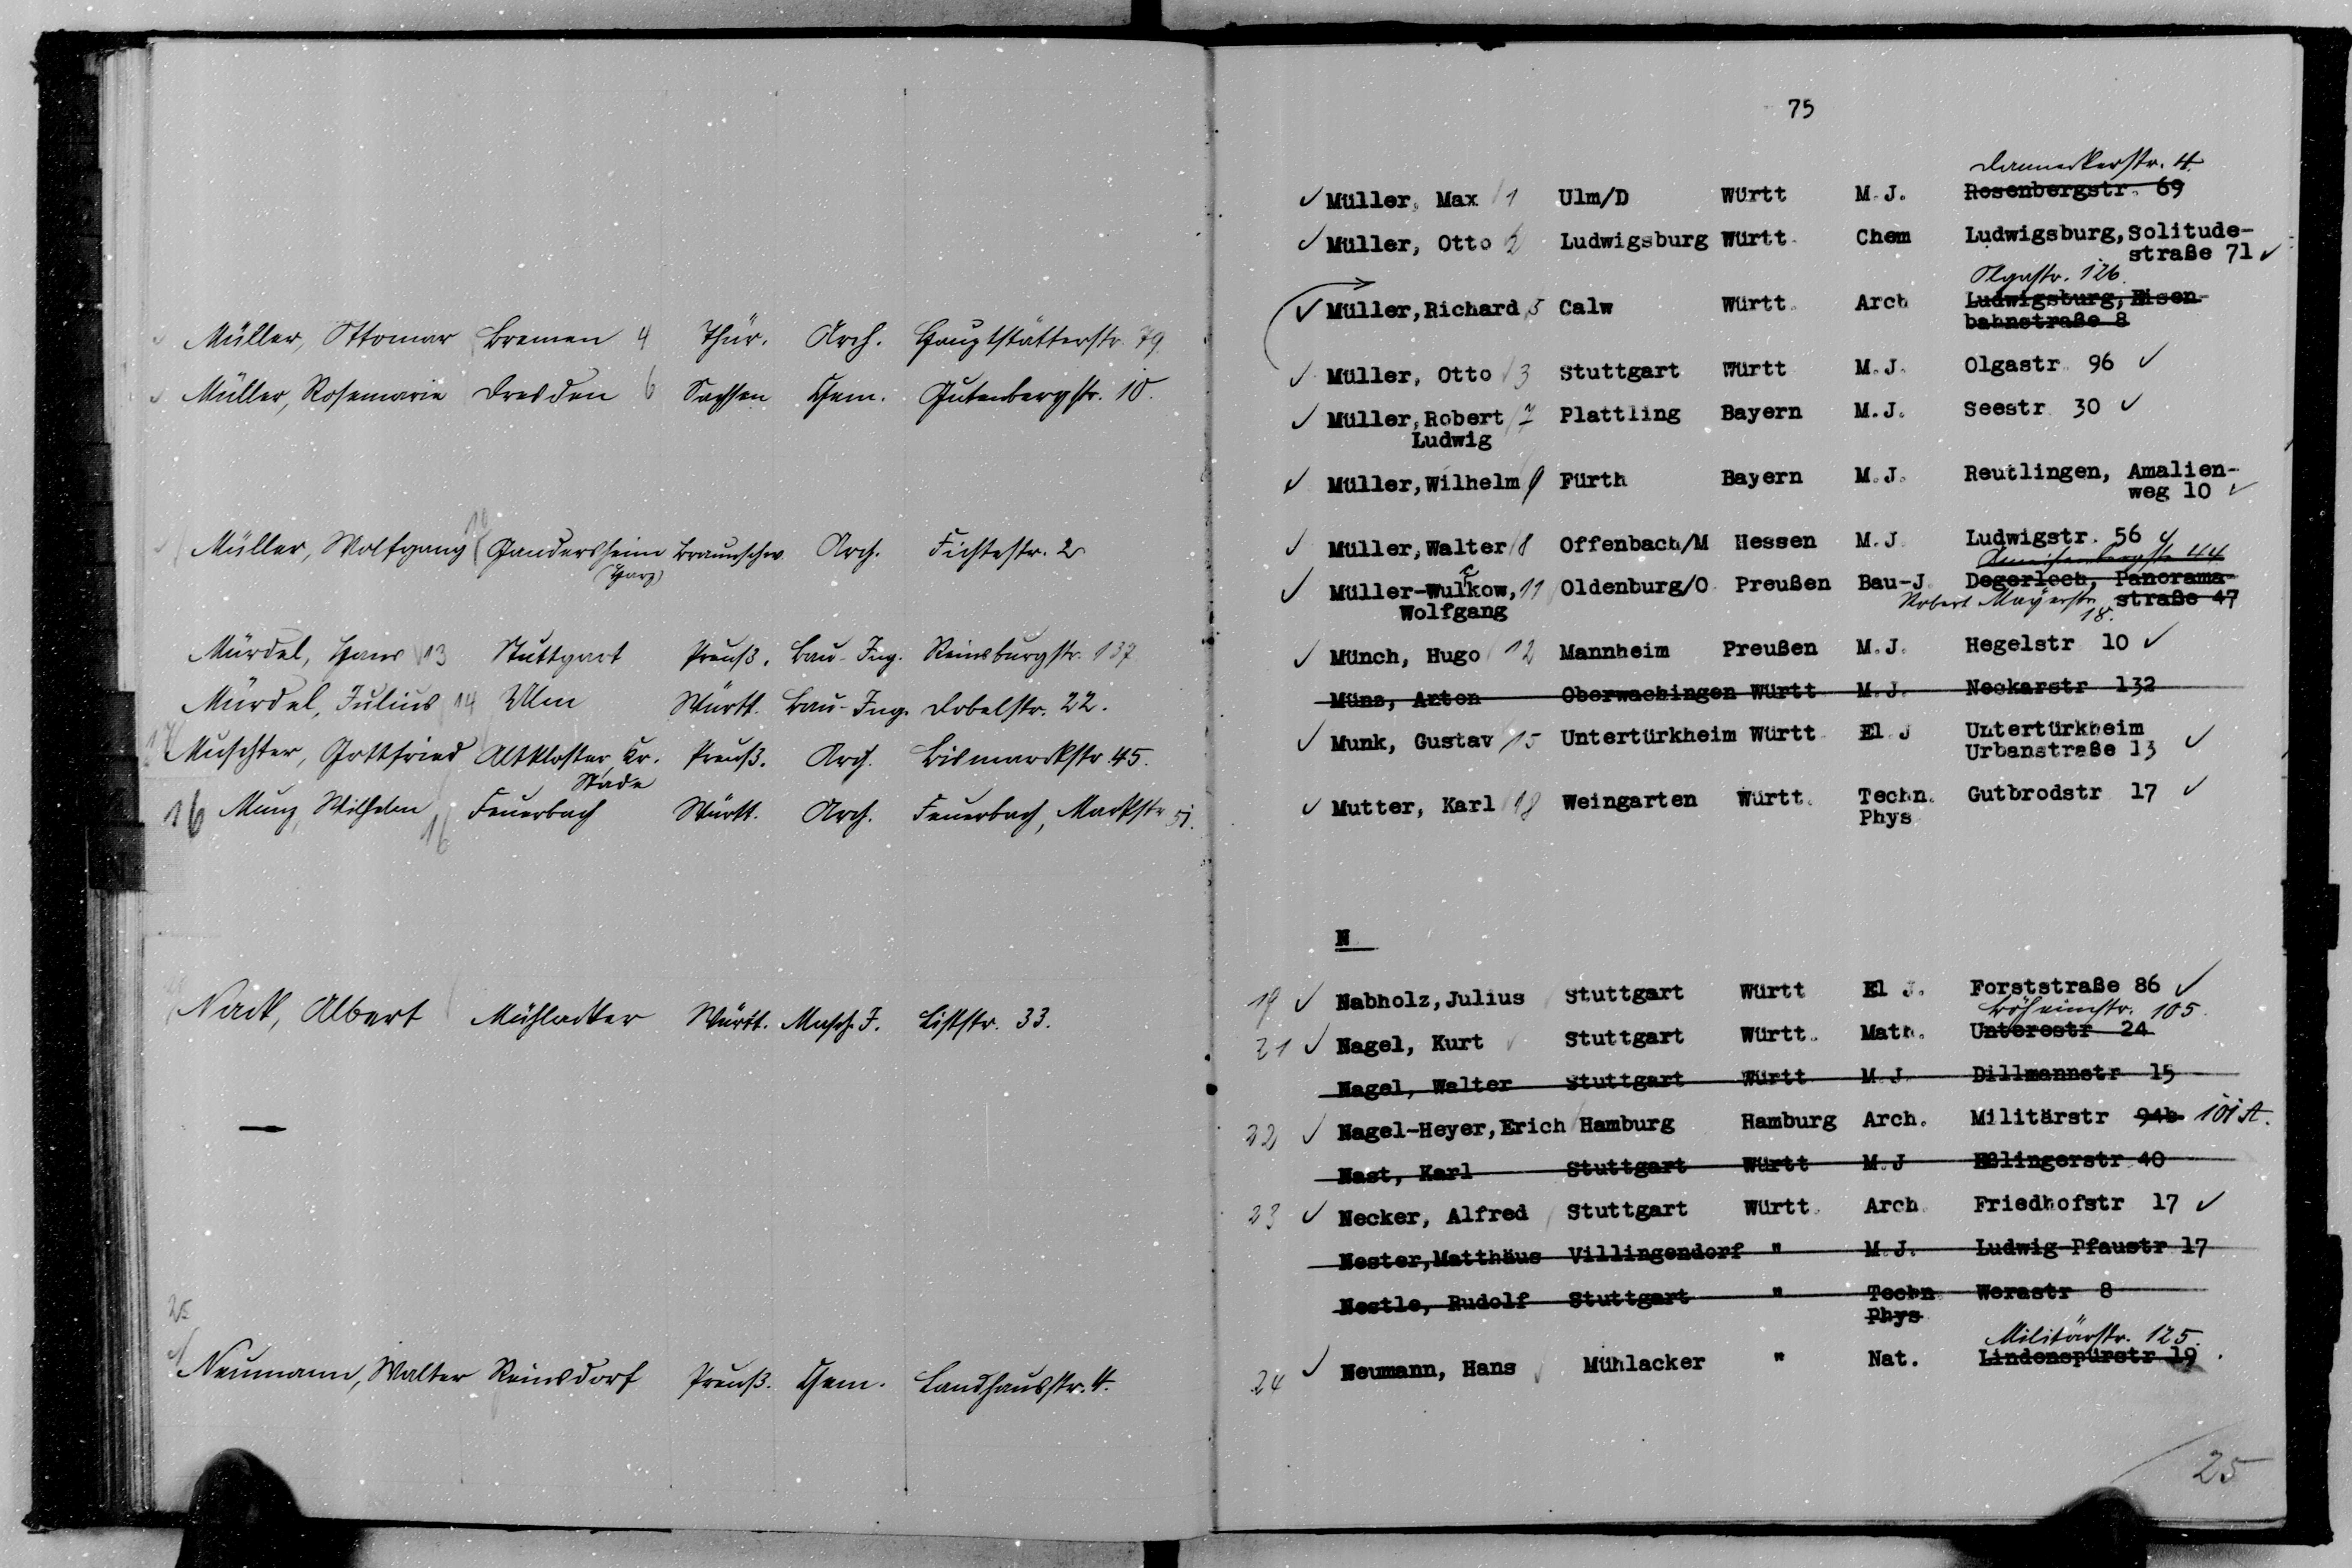 Müller, Ottomar Bremen 4 Thür. Arch. Hauptstätterstr. 79
Müller, Rosemarie Dresden 6 Sachsen Chem. Gutenbergstr. 10.
Müller, Wolfgang 10 Gandersheim Braunschw. Arch. Fichtestr. 2
(Harz)
Mürdel, Hans 13 Stuttgart Preuß. Bau-Ing. Reinsburgstr. 137
Mürdel, Julius 14 Ulm Württ. Bau-Ing. Dobelstr. 22.
17 Muschter, Gottfried Altkloster, Kr. Preuß. Arch. Bismarckstr. 45.
Stade
16 Munz, Wilhelm 16 Feuerbach Württ. Arch. Feuerbach, Markstr. 51.
Nack, Albert Mühlacker Württ. Masch. I. Liststr. 33.
25
Neumann, Walter Reinsdorf Preuß. Chem. Landhausstr. 4.
75
Danneckerstr. 4.
✓ Müller, Max 1 Ulm/D Württ M.J. Rosenbergstr. 69
✓ Müller, Otto 2 Ludwigsburg Württ. Chem Ludwigsburg, Solitude-
straße 71 ✓
Olgastr. 126.
✓ Müller, Richard 5 Calw Württ. Arch Ludwigsburg, Eisen-
bahnstraße 8
✓ Müller, Otto 3 Stuttgart Württ M.J. Olgastr. 96 ✓
✓ Müller, Robert 7 Plattling Bayern M.J. Seestr 30 ✓
Ludwig
✓ Müller, Wilhelm 9 Fürth Bayern M.J. Reutlingen, Amalien-
weg 10 ✓
✓ Müller, Walter 8 Offenbach/M Hessen M.J. Ludwigstr. 56 ✓
Ameisenbergstr. 44
✓ Müller-Wulckow, 11 Oldenburg/O Preußen Bau-J. Degerloch, Panorama-
Wolfgang Robert Mayerstr. straße 47
18.
✓ Münch, Hugo 12 Mannheim Preußen M.J. Hegelstr 10 ✓
Münz, Anton Oberwachingen Württ M.J. Neckarstr 132
✓ Munk, Gustav 15 Untertürkheim Württ. El J Untertürkheim
Urbanstraße 13 ✓
✓ Mutter, Karl 18 Weingarten Württ. Techn. Gutbrodstr 17 ✓
Phys
N
19 ✓ Nabholz, Julius Stuttgart Württ El J. Forststraße 86 ✓
Böheimstr. 105.
21 ✓ Nagel, Kurt Stuttgart Württ. Math. Unterestr 24
Nagel, Walter Stuttgart Württ M.J. Dillmannstr 15
22 ✓ Nagel-Heyer, Erich Hamburg Hamburg Arch. Militärstr 94b 101 A.
Nast, Karl Stuttgart Württ M.J Eßlingerstr 40
23 ✓ Necker, Alfred Stuttgart Württ. Arch. Friedhofstr 17 ✓
Nester, Matthäus Villingendorf " M.J. Ludwig-Pfaustr 17
Nestle, Rudolf Stuttgart " Techn Werastr 8
Phys
Militärstr. 125.
24 ✓ Neumann, Hans Mühlacker " Nat. Lindenspürstr 19
25